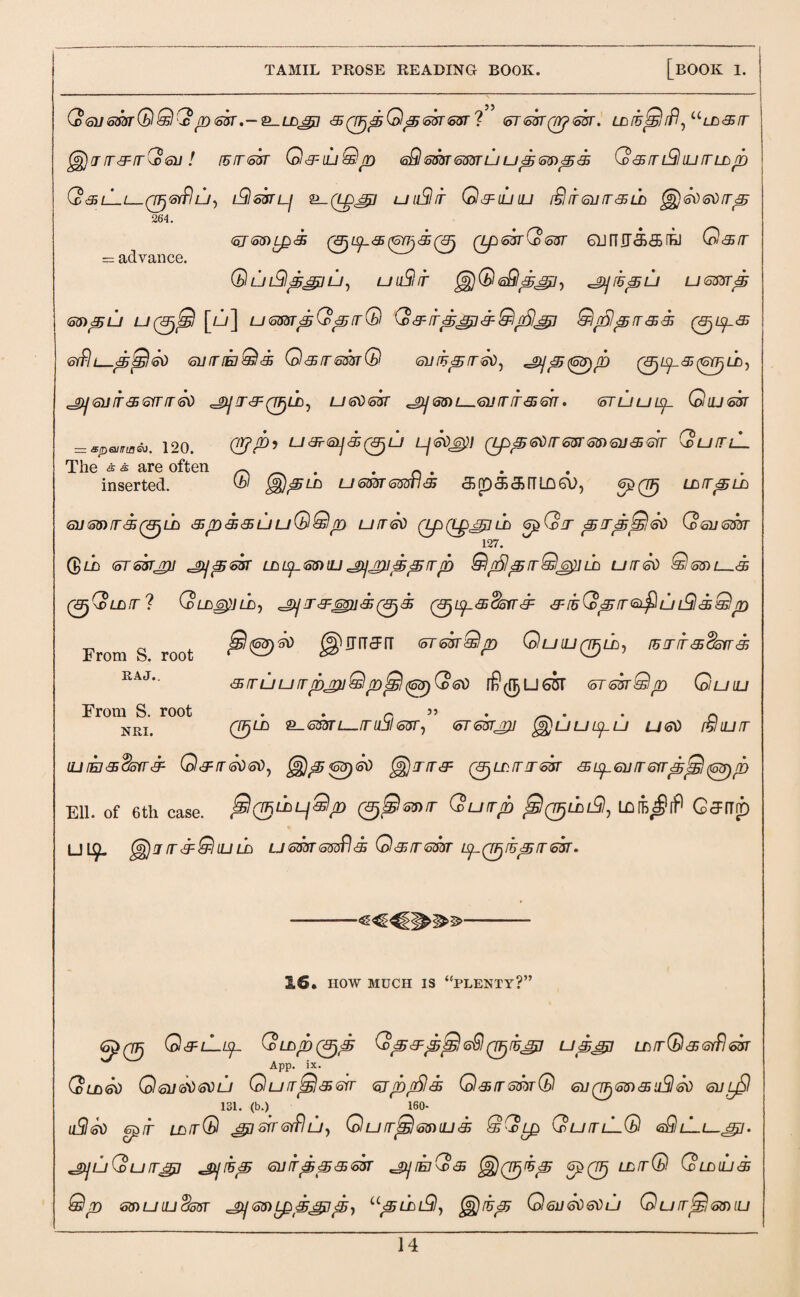 TAMIL PROSE READING BOOK. [BOOK I.
வேண்டுகிறேன்.—உமது கருத்தென்ன?” என்றான். மந்திரி, “மகா
இராசாவே! நான் செய்கிற விண்ணப்பத்தைக் கோபியாமற்
கேட்டருளிப், பின்பு உமது பயிர் செய்ய நிர்வாகம் இல்லாத
264.
ஏழைக் குடிகளுக்கு முன்னே வாரக்கங் கொ
= advance.
டுப்பித்துப், பயிர் இடுவித்து, அந்தப் பணத்
தைப் பகுதி [ப்] பணத்தோடு சேர்த்துச்சிறிது சிறிதாகக் குடிக
ளிடத்தில் வாங்கிக் கொண்டு வந்தால், அத்தனை குடிகளும்,
அவர்களால் அரசரும், பலன் அடைவார்கள். எப்படி யென
= கறவாமல். 120.
றாற், பசுவுக்குப் புல்லு முதலானவைகள் போட்
The க் க are often
டு இதம் பண்ணிக் கறக்காமல், ஒரு மாதம்
inserted.
வரைக்கும் கறக்கப்படுகிற பால் முழுதும் ஒரே தரத்தில் வேண்
127.
டும் என்று அதன் மடியை அறுத்தாற் சிறிதாகிலும் பால் கிடைக்
குமோ? மேலும், அரசனுக்குக் குடிகளைச் சந்தோஷிப்பிக்கிற
From S. root
தினால் இராசா என்கிற பெயரும், நரர்களைக்
RAJ.
காப்பாற்றுகிறதினாலே நிருபன் என்கிற பெய
From S. root
NRI.
ரும் உண்டாயின,” என்று இப்படிப் பல நியா
யங்களைச் சொல்ல, இதனால் இராச குமாரன் கடிவாளத்தினாற்
Ell. of 6th case. திரும்புகிற குதிரை போற் திரும்பி, மந்திரி சொற்
படி இராச்சியம் பண்ணிக் கொண்டிருந்தான்.
16. HOW MUCH IS “PLENTY?”
ஒரு செட்டி மேற்குத் தேசத்திலிருந்து பத்து மாடுகளின்
App. ix.
மேல் வெல்லப் பொதிகள் ஏற்றிக் கொண்டு வருகையில் வழி
131. (b.) 160.
யில் ஓர் மாடு துள்ளிப், பொதியைக் கீழே போட்டு விட்டது.
அப்போது அந்த வர்த்தகன் அங்கே இருந்த ஒரு மாடு மேய்க்
கிற பையனை அழைத்து, “தம்பி, இந்த வெல்லப் பொதியை
14